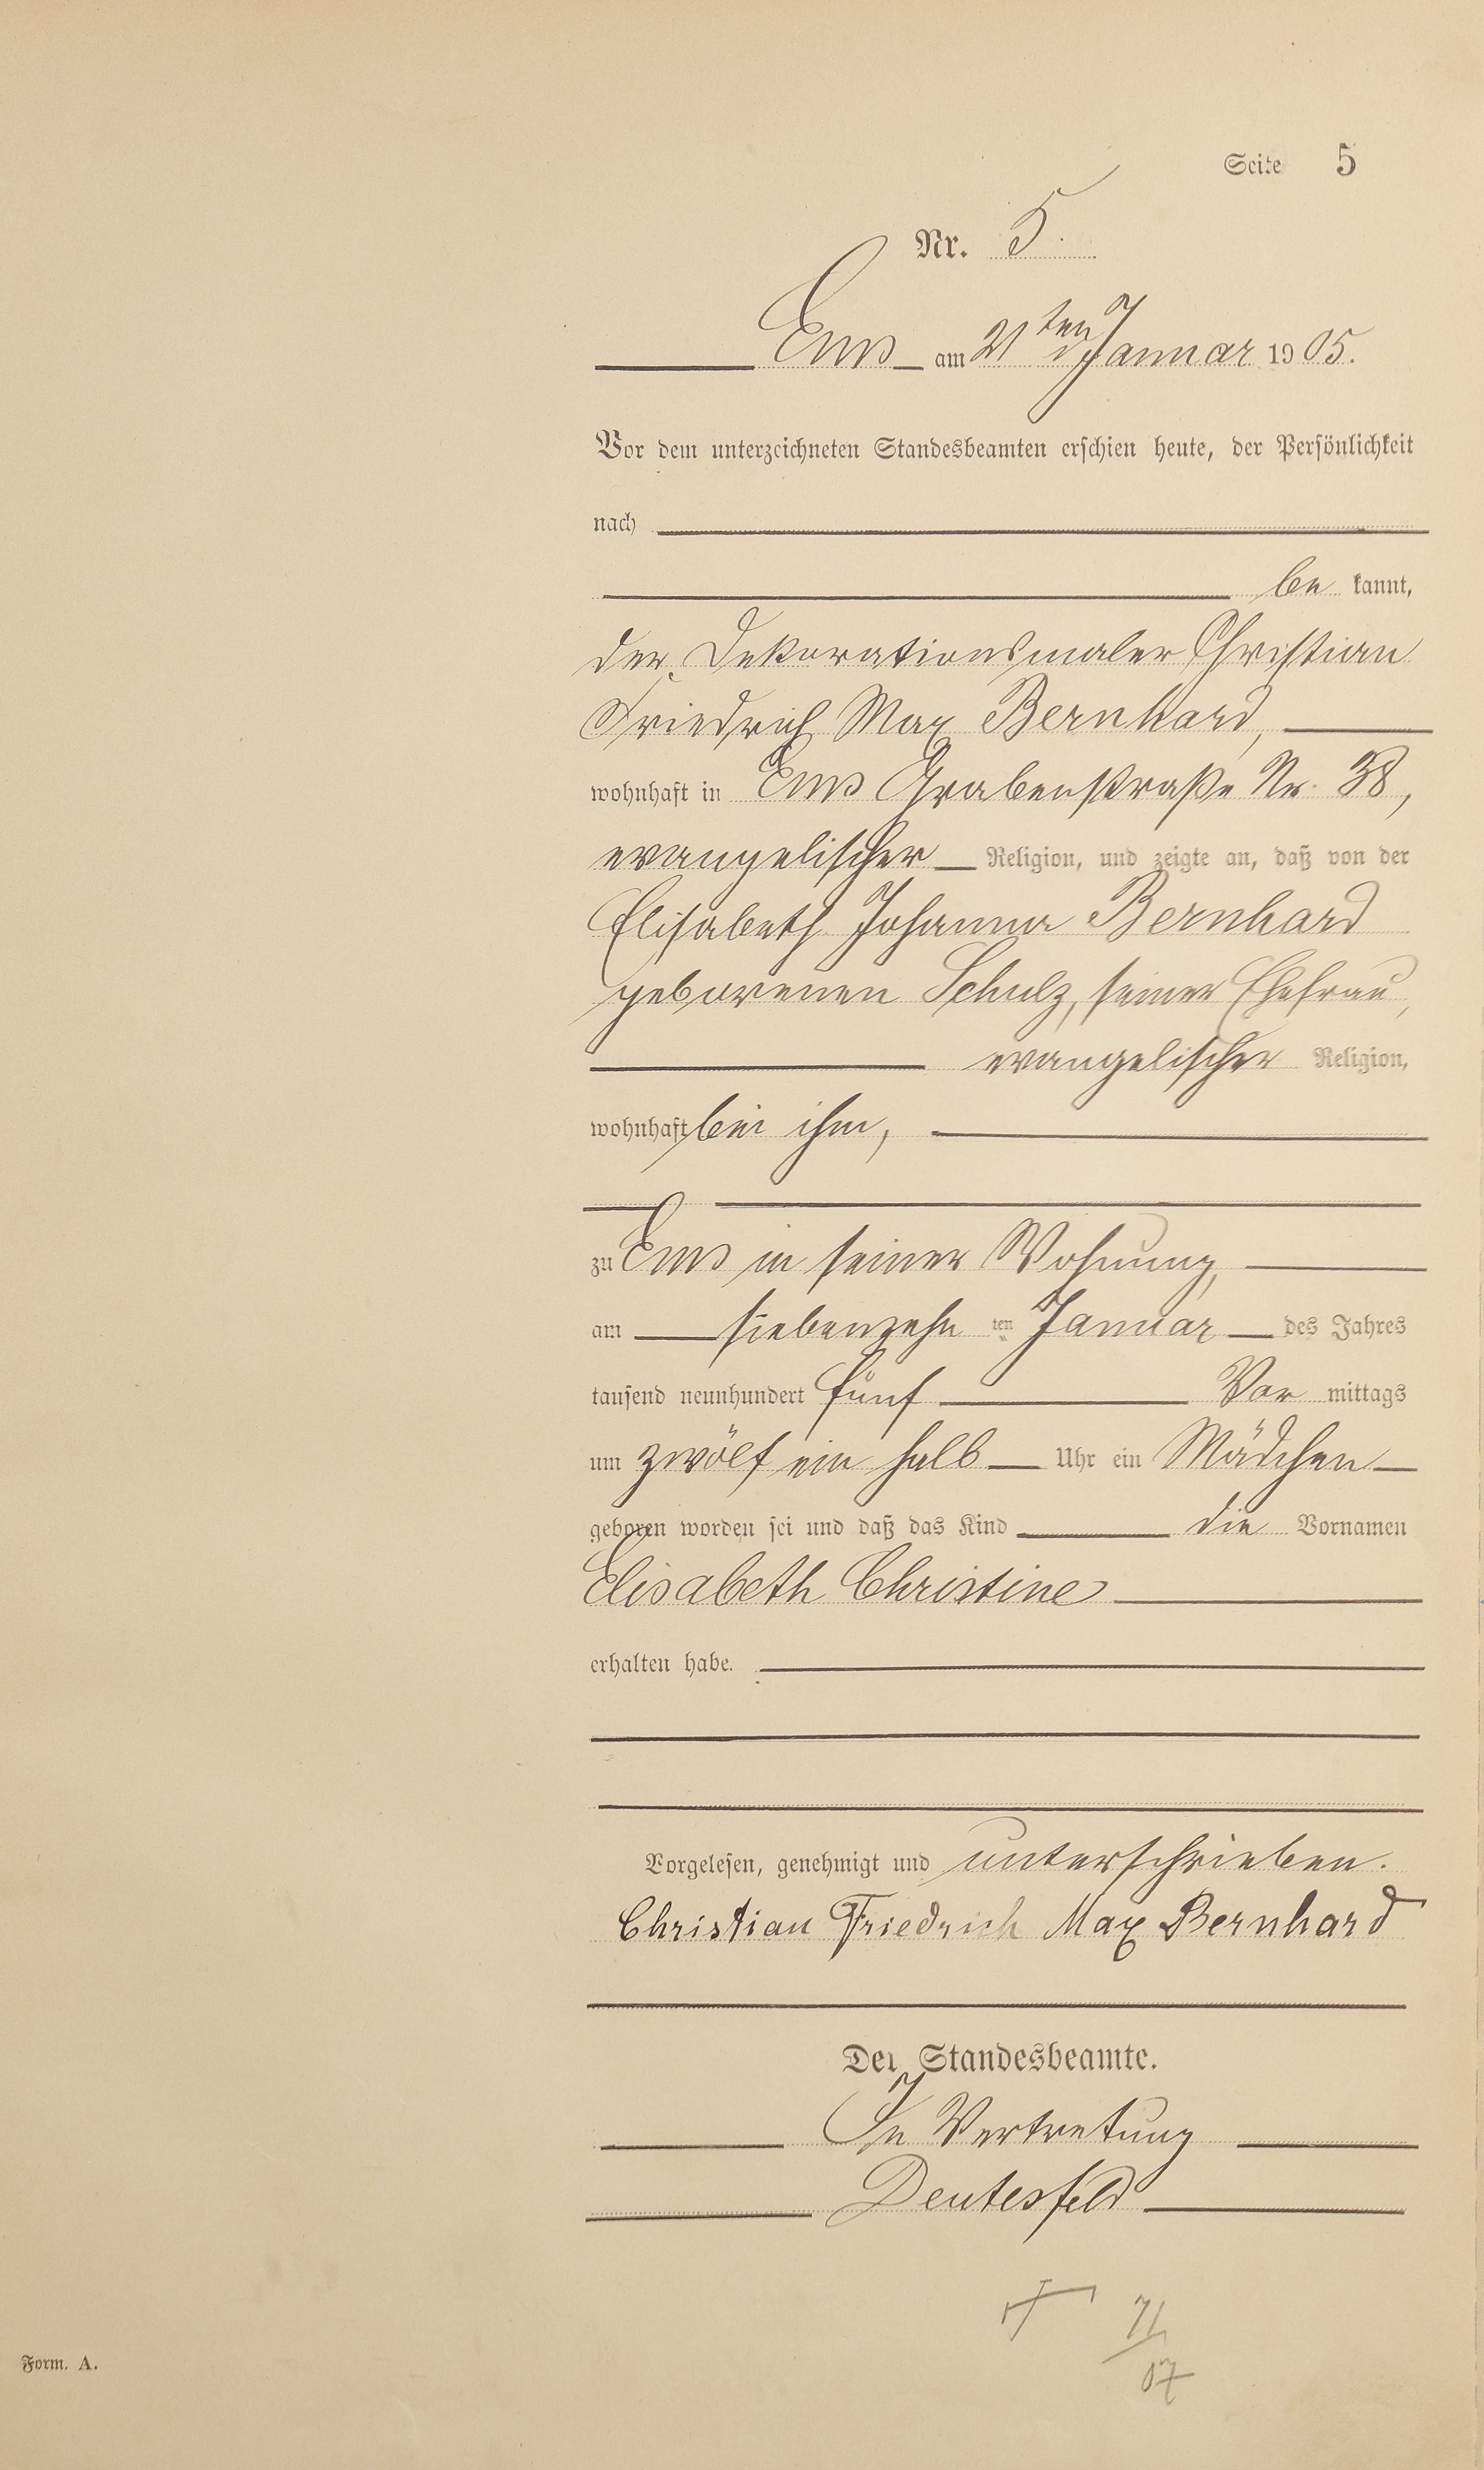 Seite 5
Nr. 5.
Ems am 21ten Januar 1905.
Vor dem unterzeichneten Standesbeamten erschien heute, der Persönlichkeit
nach
be kannt,
der Dekorationsmaler Christian
Friedrich Max Bernhard,
wohnhaft in Ems Grabenstraße Nr. 38,
evangelischer Religion, und zeigte an, daß von der
Elisabeth Johanna Bernhard
geborenen Schulz, seiner Ehefrau,
evangelischer Religion,
wohnhaft bei ihm,
zu Ems in seiner Wohnung,
am siebenzehn ten Januar des Jahres
tausend neunhundert fünf Vor mittags
um zwölf ein halb Uhr ein Mädchen
geboren worden sei und daß das Kind die Vornamen
Elisabeth Christine
erhalten habe.
Vorgelesen, genehmigt und unterschrieben.
Christian Friedrich Max Bernhard
Der Standesbeamte.
In Vertretung
Deutesfeld
Form. A.